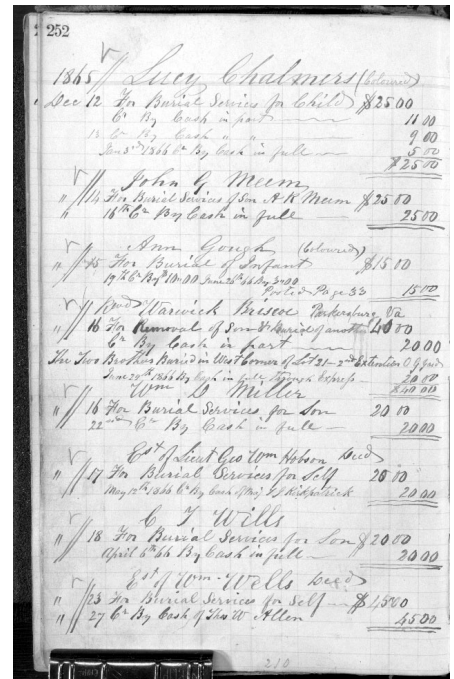 252
1865 Lucy Chalmers (Coloured)
Dec 12 For Burial Services for Child $25 00
Cr By Cash in part 11 00
13 Cr By Cash " " 9 00
Jan 3rd 1866 Cr By Cash in full 5 00
$25 00
John G Meem
" 14 For Burial Services of Son A K Meem $25 00
" 18th Cr By Cash in full 25 00
Ann Gough (Coloured)
" 15 For Burial of Infant $15 00
19th Cr By $ June 25th 66 By
Posted Page 33 15 00
Warwick Briscoe Parkersburg Va
" 16 For Removal of Son & Burial of another 40 00
Cr By Cash in part 20 00
The Two Brothers Buried in West Corner of Lot 21 - 2nd Extention
June 20th 1866 By Cash in full through Express 20 00
$40 00
Wm D Miller
" 16 For Burial Services for Son 20 00
22nd Cr By Cash in full 20 00
Est of Lieut Geo Wm Hobson Decd
" 17 For Burial Services for Self 20 00
May 12th 1866 Cr By Cash of Maj Kirkpatrick 20 00
C T Wills
" 18 For Burial Services for Son $20 00
April 6th 66 By Cash in full 20 00
Est of Wm Wells Decd
" 23 For Burial Services for Self $45 00
" 27 Cr By Cash of Thos W Allen 45 00
210